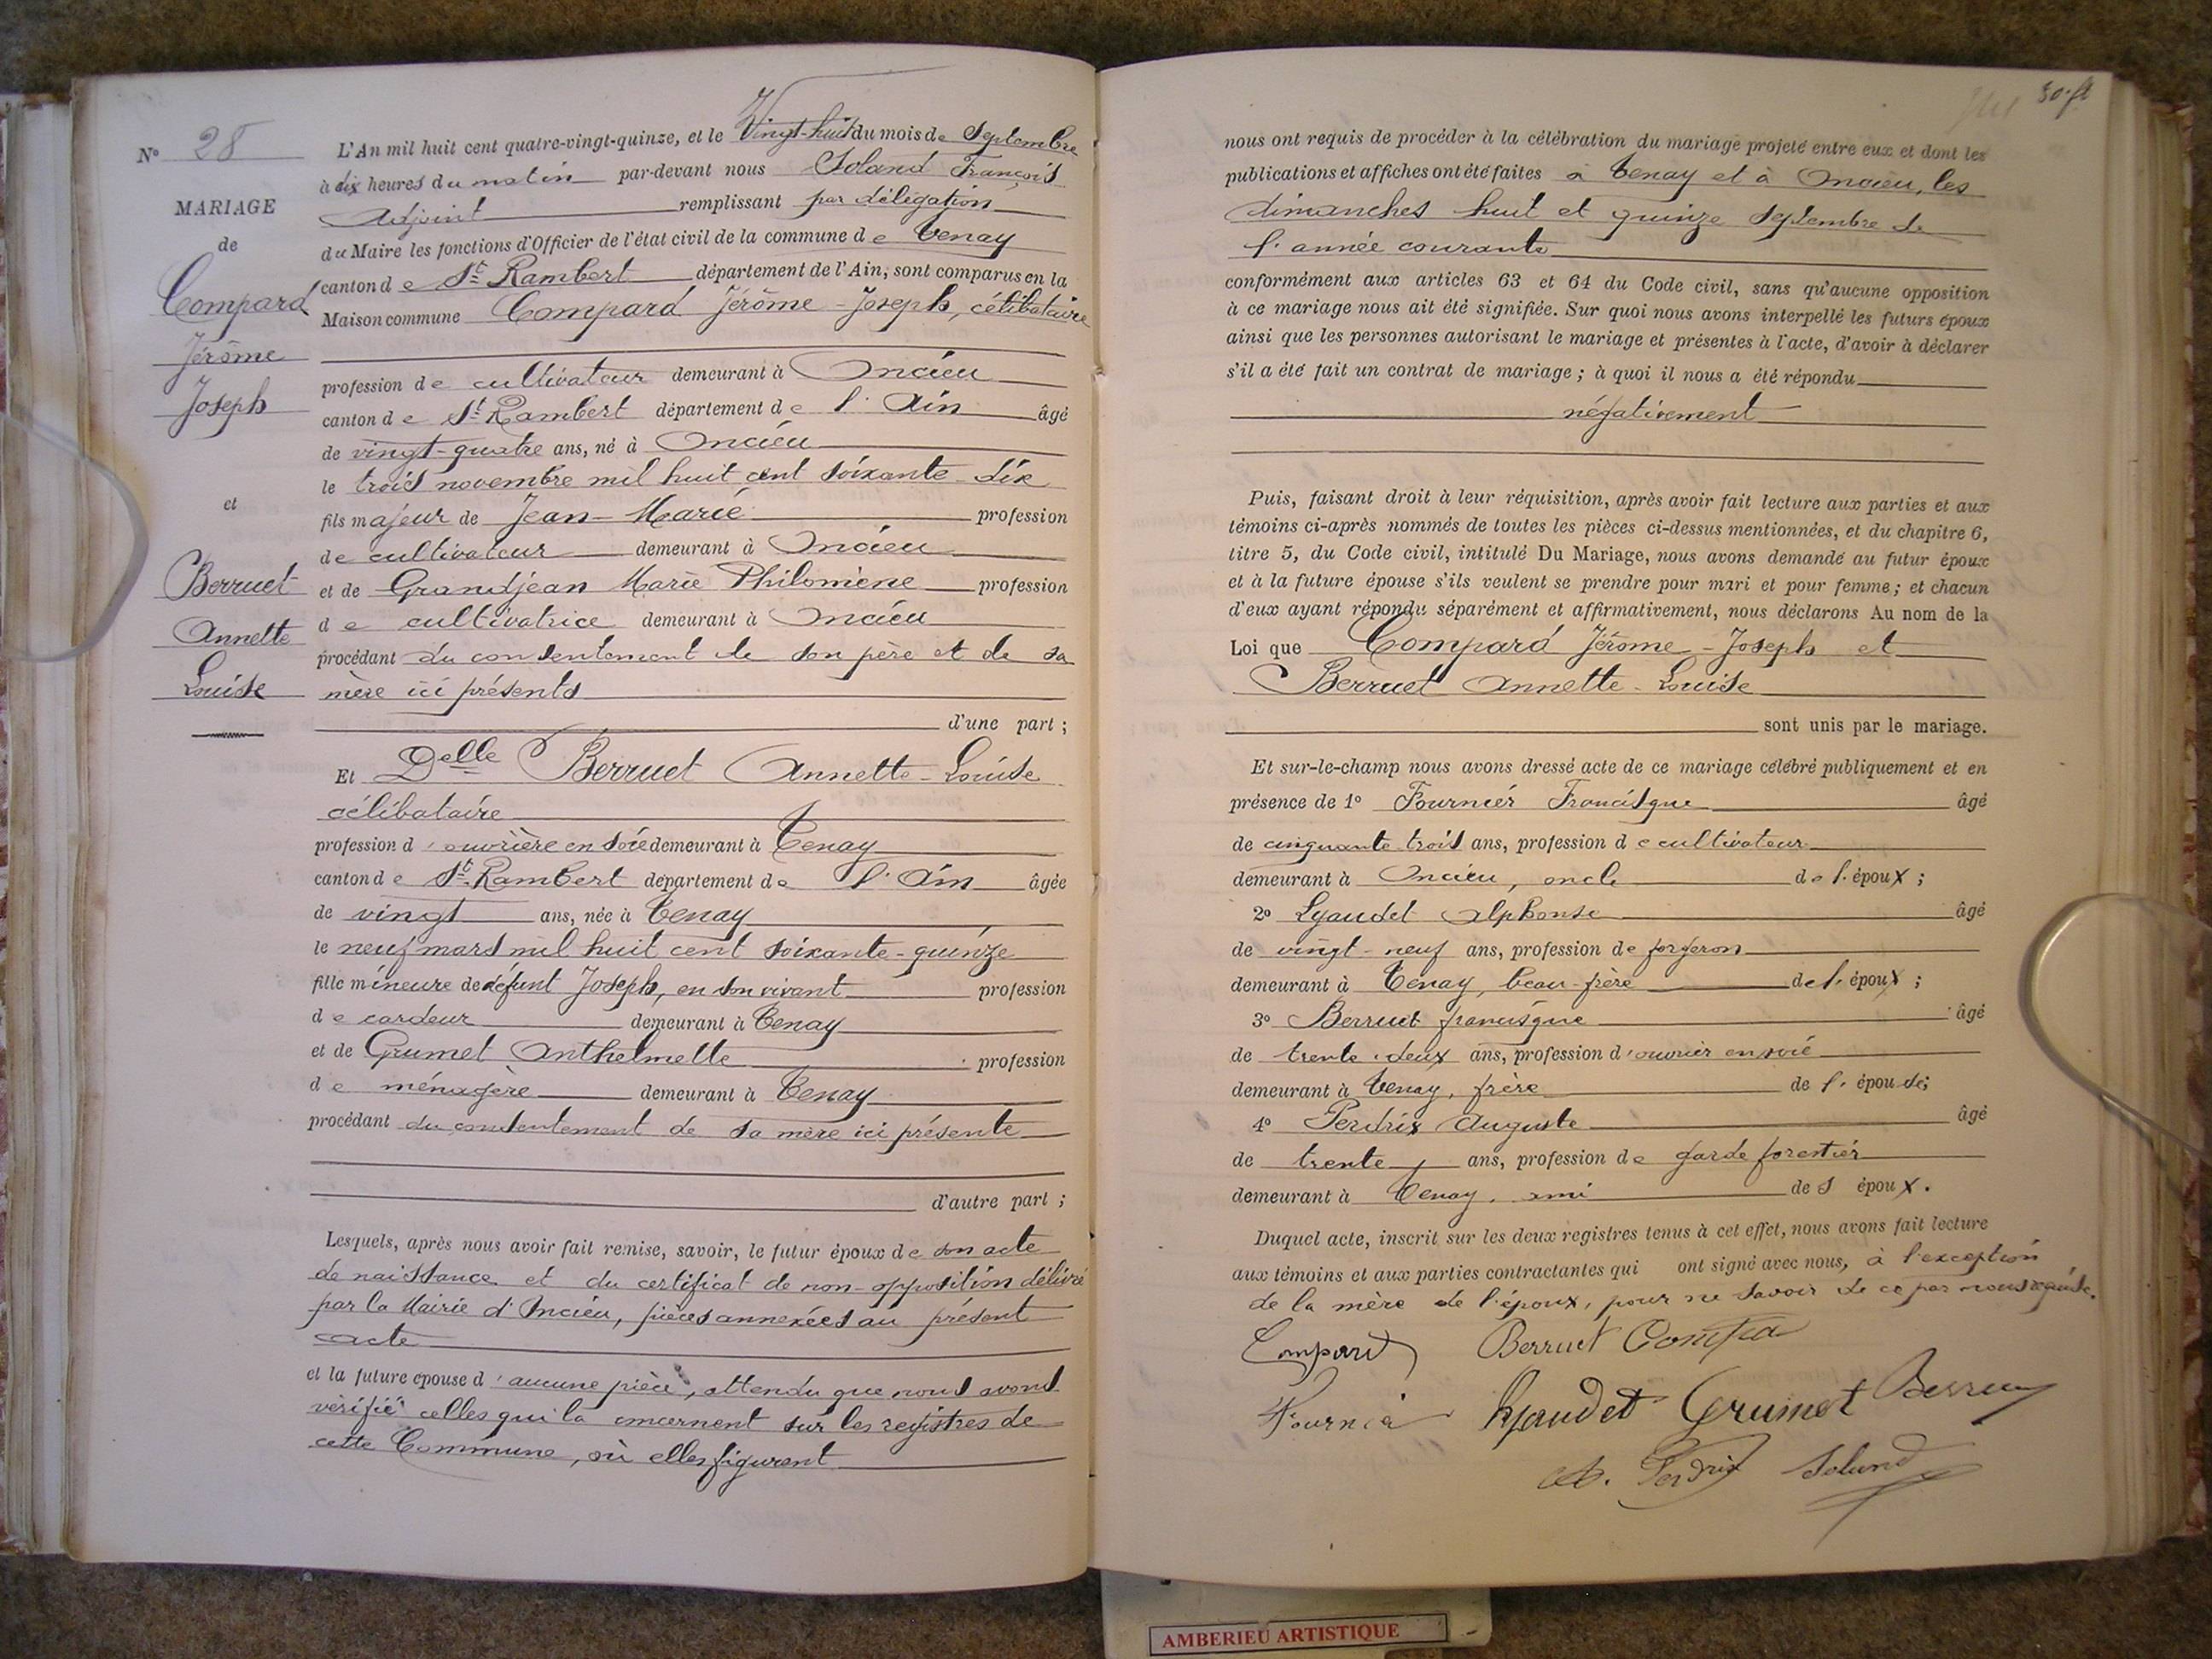 N° 28
MARIAGE
de
Compard
Jérôme
Joseph
et
Berruet
Annette
Louise
L'An mil huit cent quatre-vingt-quinze, et le Vingt-huit du mois de Septembre
à dix heures du matin par-devant nous Soland François
Adjoint remplissant par délégation
du Maire les fonctions d'Officier de l'état civil de la commune de Tenay
canton de St Rambert département de l'Ain, sont comparus en la
Maison commune Compard Jérôme - Joseph, célibataire
profession de cultivateur demeurant à Oncieu
canton de St Rambert département de l'Ain âgé
de vingt-quatre ans, né à Oncieu
le trois novembre mil huit cent soixante-dix
fils majeur de Jean-Marie profession
de cultivateur demeurant à Oncieu
et de Grandjean Marie Philomène profession
de cultivatrice demeurant à Oncieu
procédant du consentement de son père et de sa
mère ici présents
d'une part ;
Et Delle Berruet Annette-Louise
célibataire
profession d'ouvrière en soie demeurant à Tenay
canton de St Rambert département de l'Ain âgée
de vingt ans, née à Tenay
le neuf mars mil huit cent soixante-quinze
fille mineure de défunt Joseph, en son vivant profession
de cardeur demeurant à Tenay
et de Grumet Anthelmette profession
de ménagère demeurant à Tenay
procédant du consentement de sa mère ici présente
d'autre part ;
Lesquels, après nous avoir fait remise, savoir, le futur époux de son acte
de naissance et du certificat de non-opposition délivré
par la Mairie d'Oncieu, pièces annexées au présent
acte
et la future épouse d'aucune pièce, attendu que nous avons
vérifié celles qui la concernent sur les registres de
cette Commune, où elles figurent
50.fl
nous ont requis de procéder à la célébration du mariage projeté entre eux et dont les
publications et affiches ont été faites à Tenay et à Oncieu, les
dimanches huit et quinze Septembre de
l'année courante
conformément aux articles 63 et 64 du Code civil, sans qu'aucune opposition
à ce mariage nous ait été signifiée. Sur quoi nous avons interpellé les futurs époux
ainsi que les personnes autorisant le mariage et présentes à l'acte, d'avoir à déclarer
s'il a été fait un contrat de mariage ; à quoi il nous a été répondu
négativement
Puis, faisant droit à leur réquisition, après avoir fait lecture aux parties et aux
témoins ci-après nommés de toutes les pièces ci-dessus mentionnées, et du chapitre 6,
titre 5, du Code civil, intitulé Du Mariage, nous avons demandé au futur époux
et à la future épouse s'ils veulent se prendre pour mari et pour femme ; et chacun
d'eux ayant répondu séparément et affirmativement, nous déclarons Au nom de la
Loi que Compard Jérome - Joseph et
Berruet Annette-Louise
sont unis par le mariage.
Et sur-le-champ nous avons dressé acte de ce mariage célébré publiquement et en
présence de 1° Fournier Francisque âgé
de cinquante-trois ans, profession de cultivateur
demeurant à Oncieu, oncle de l'époux ;
2° Lyaudet Alphonse âgé
de vingt-neuf ans, profession de forgeron
demeurant à Tenay, beau-frère de l'époux ;
3° Berruet francisque âgé
de trente-deux ans, profession d'ouvrier en soie
demeurant à Tenay, frère de l'épouse ;
4° Perdrix Auguste âgé
de trente ans, profession de garde forestier
demeurant à Tenay, ami des époux.
Duquel acte, inscrit sur les deux registres tenus à cet effet, nous avons fait lecture
aux témoins et aux parties contractantes qui ont signé avec nous, à l'exception
de la mère de l'époux, pour ne savoir de ce par nous requise.
Compard Berruet Compa
Fournié Lyaudet Grumet Berruet
A. Perdrix Soland
AMBERIEU ARTISTIQUE